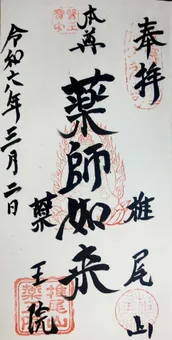 奉拝
椎尾山
本尊
薬師如来
薬王院
令和六年三月二日